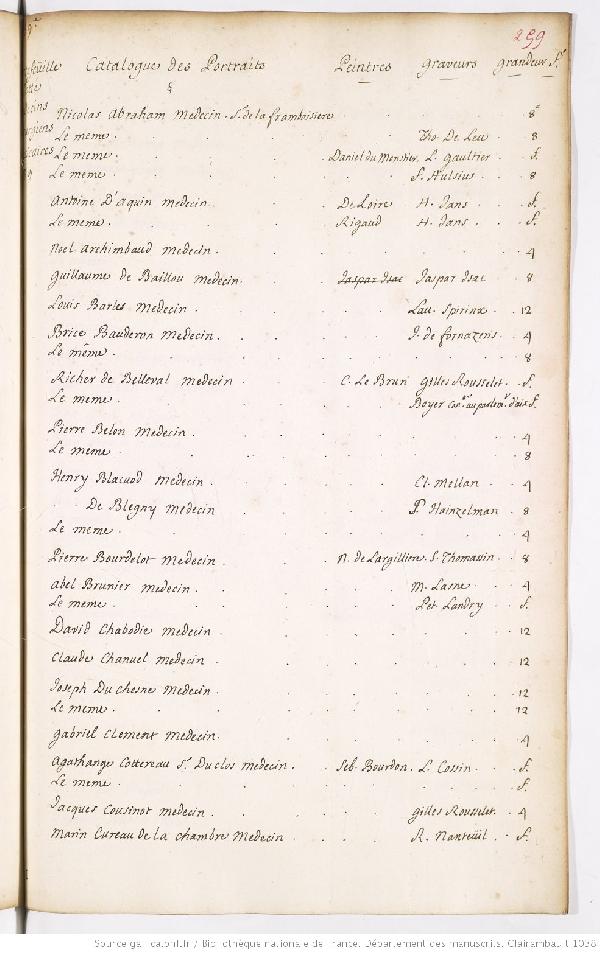 259
Catalogue des Portraits Peintres graveurs grandeurs
Nicolas Abraham Medecin. Sr. de la framboisiere 8
Le meme. Tho. De Leu 8
Le meme. Daniel du Monstier. L. gaultier f.
Le meme. f. Hulsius 8
Antoine D'aquin medecin. De Loire H. Jans f.
Le meme. Rigaud H. Jans f.
Noel Archimbaud medecin. 4
guillaume de Baillou medecin. Jaspar Isac Jaspar Isac 8
Louis Barles medecin. Lau. Spirinx 12
Brice Bauderon medecin. J. de fornazeris 4
Le même. 8
Richer de Belleval medecin C. Le Brun gilles Rousselet. f.
Le meme. Boyer f.
Pierre Belon Medecin. 4
Le meme. 8
Henry Blacuod medecin. Cl. Mellan 4
De Blegny medecin P. Hainzelman 8
Le meme. 4
Pierre Bourdelot medecin. N. de Largilliere. S. Thomassin. 8
Abel Brunier medecin. M. Lasne 4
Le meme. Pet. Landry f.
David Chabodie medecin 12
Claude Chanuel medecin 12
Joseph Du Chesne medecin. 12
Le meme. 12
gabriel Clement medecin. 4
Agathange Cottereau Sr. Duclos medecin. Seb. Bourdon. L. Cossin. f.
Le meme. f.
Jacques Cousinot medecin. gilles Rousselet. 4
Marin Cureau de la chambre Medecin R. Nanteüil f.
Source gallica.bnf.fr / Bibliothèque nationale de France. Département des manuscrits. Clairambault 1038